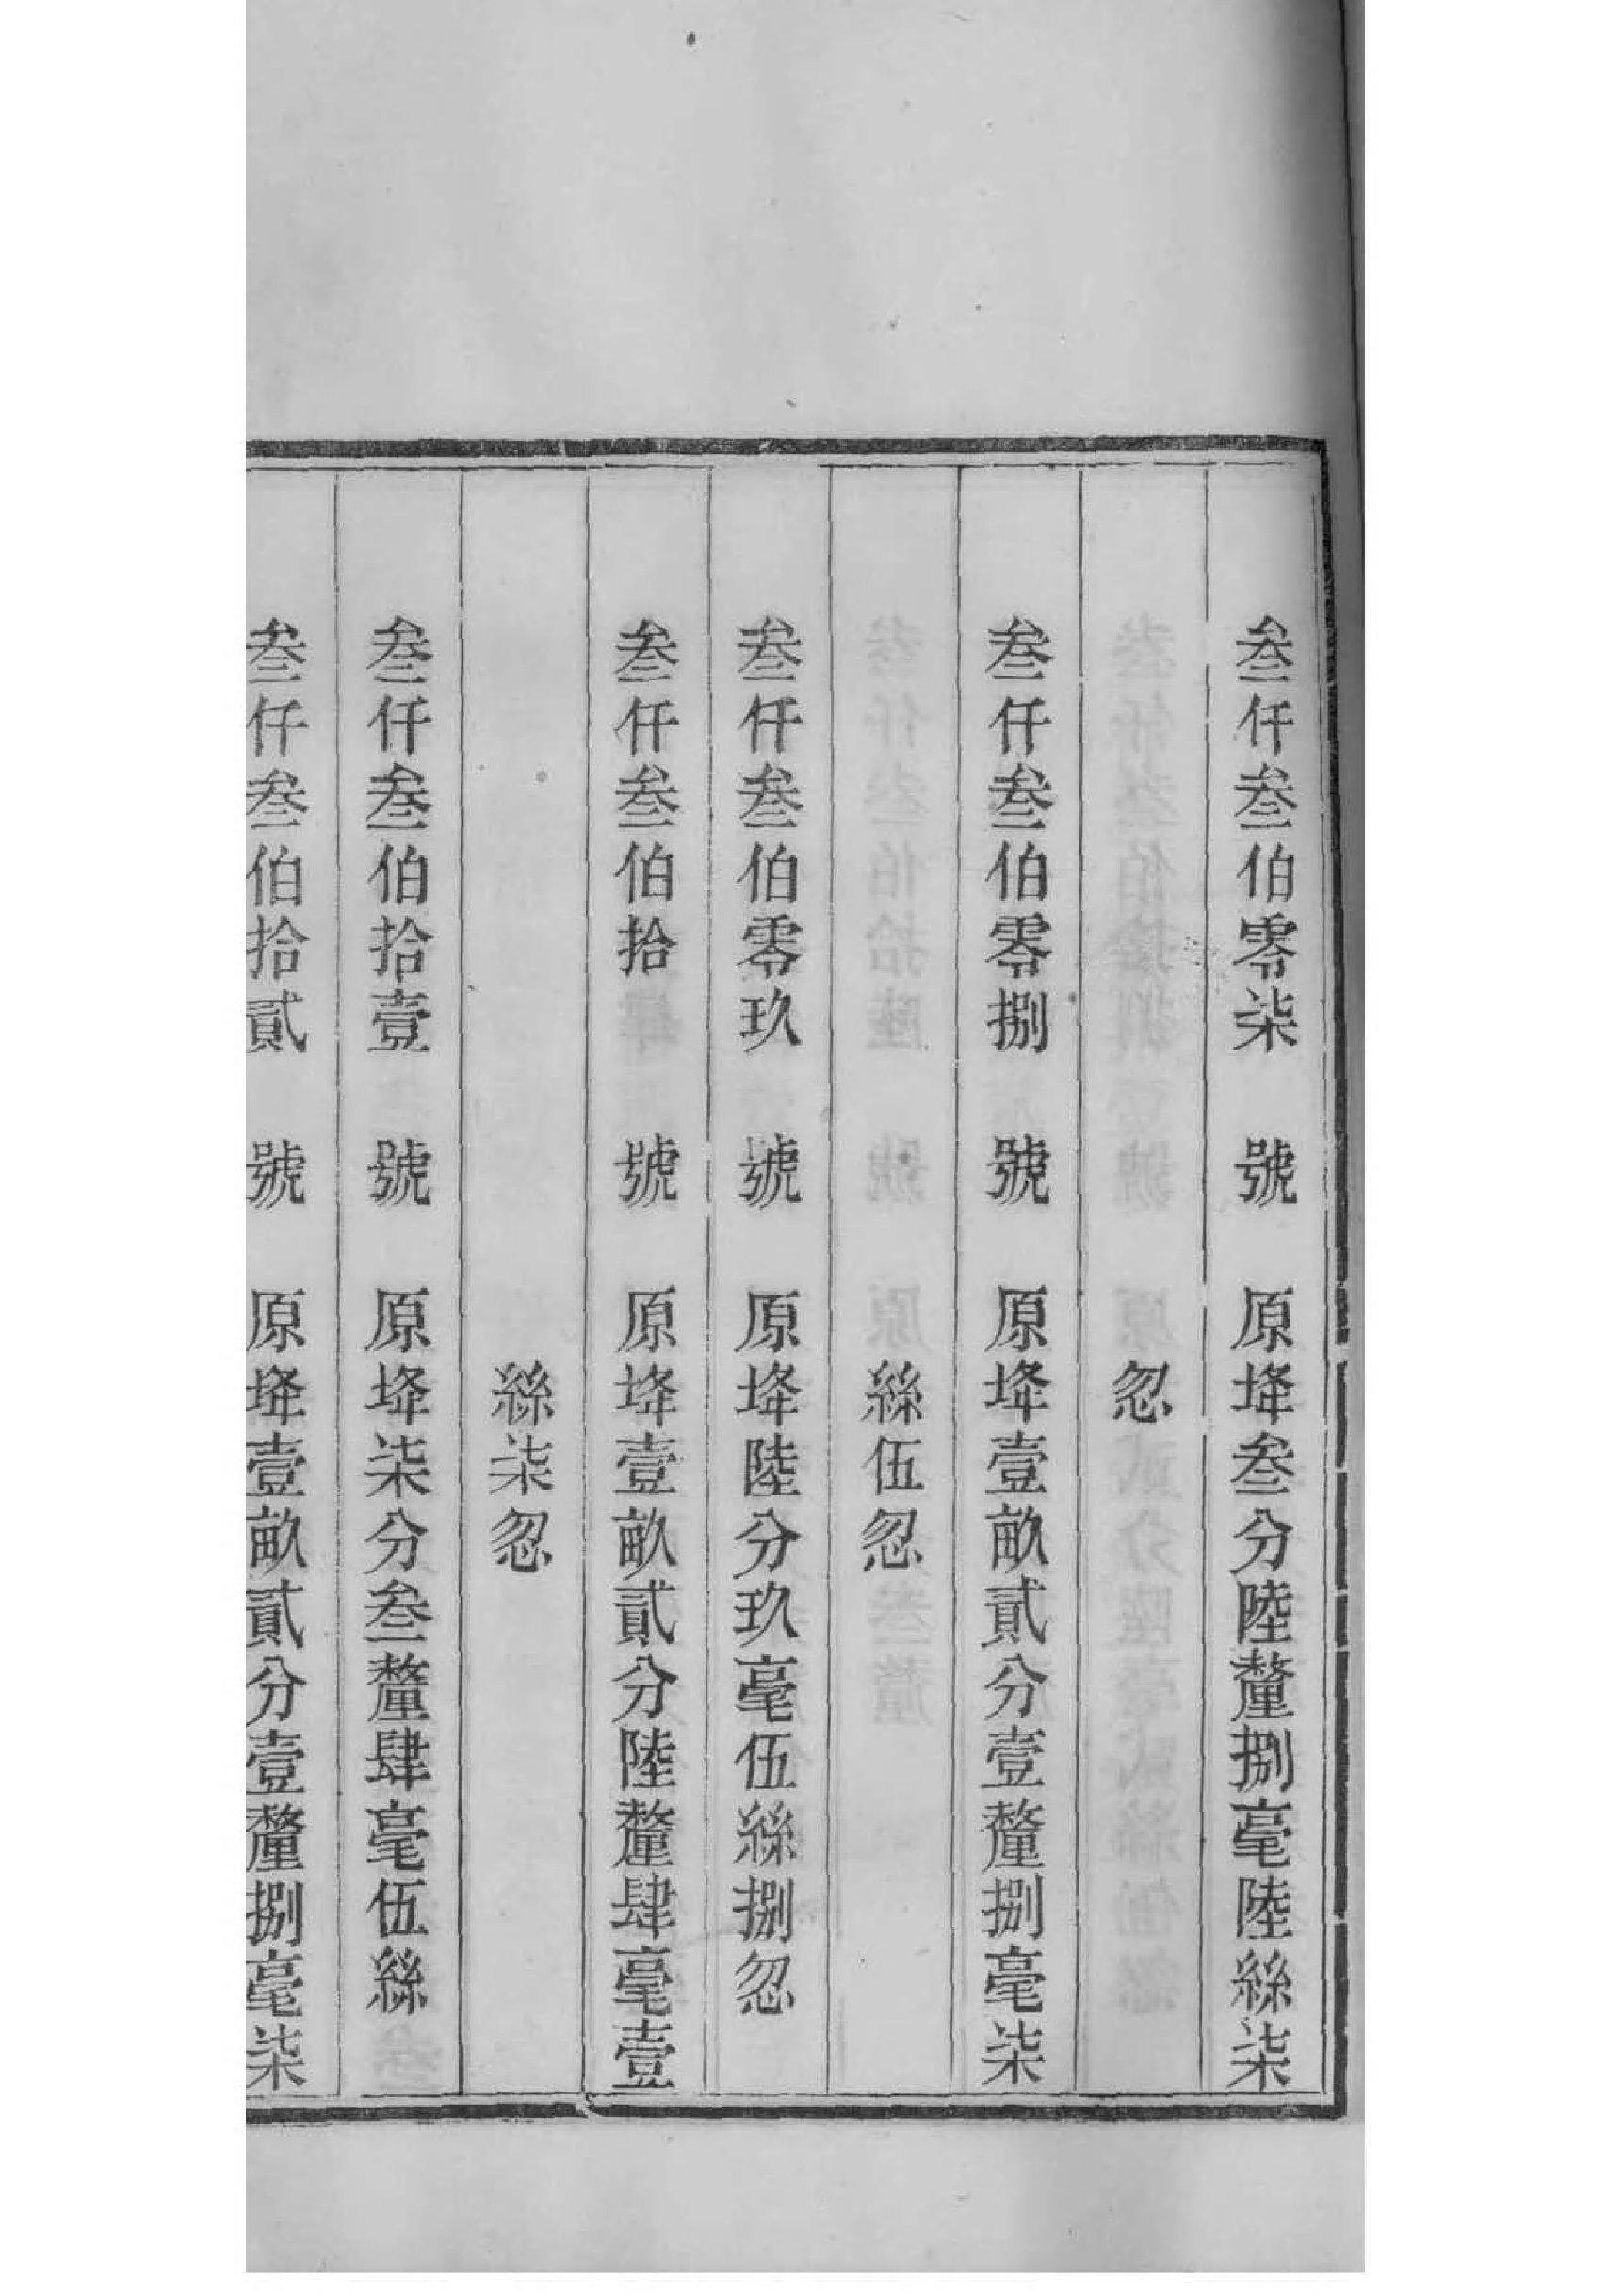 叁仟叁伯零柒 號 原埄叁分陸釐捌毫陸絲柒
忽
叁仟叁伯零捌 號 原埄壹畝貳分壹釐捌毫柒
絲伍忽
叁仟叁伯零玖 號 原埄陸分玖毫伍絲捌忽
叁仟叁伯拾 號 原埄壹畝貳分陸釐肆毫壹
絲柒忽
叁仟叁伯拾壹 號 原埄柒分叁釐肆毫伍絲
叁仟叁伯拾貳 號 原埄壹畝貳分壹釐捌毫柒